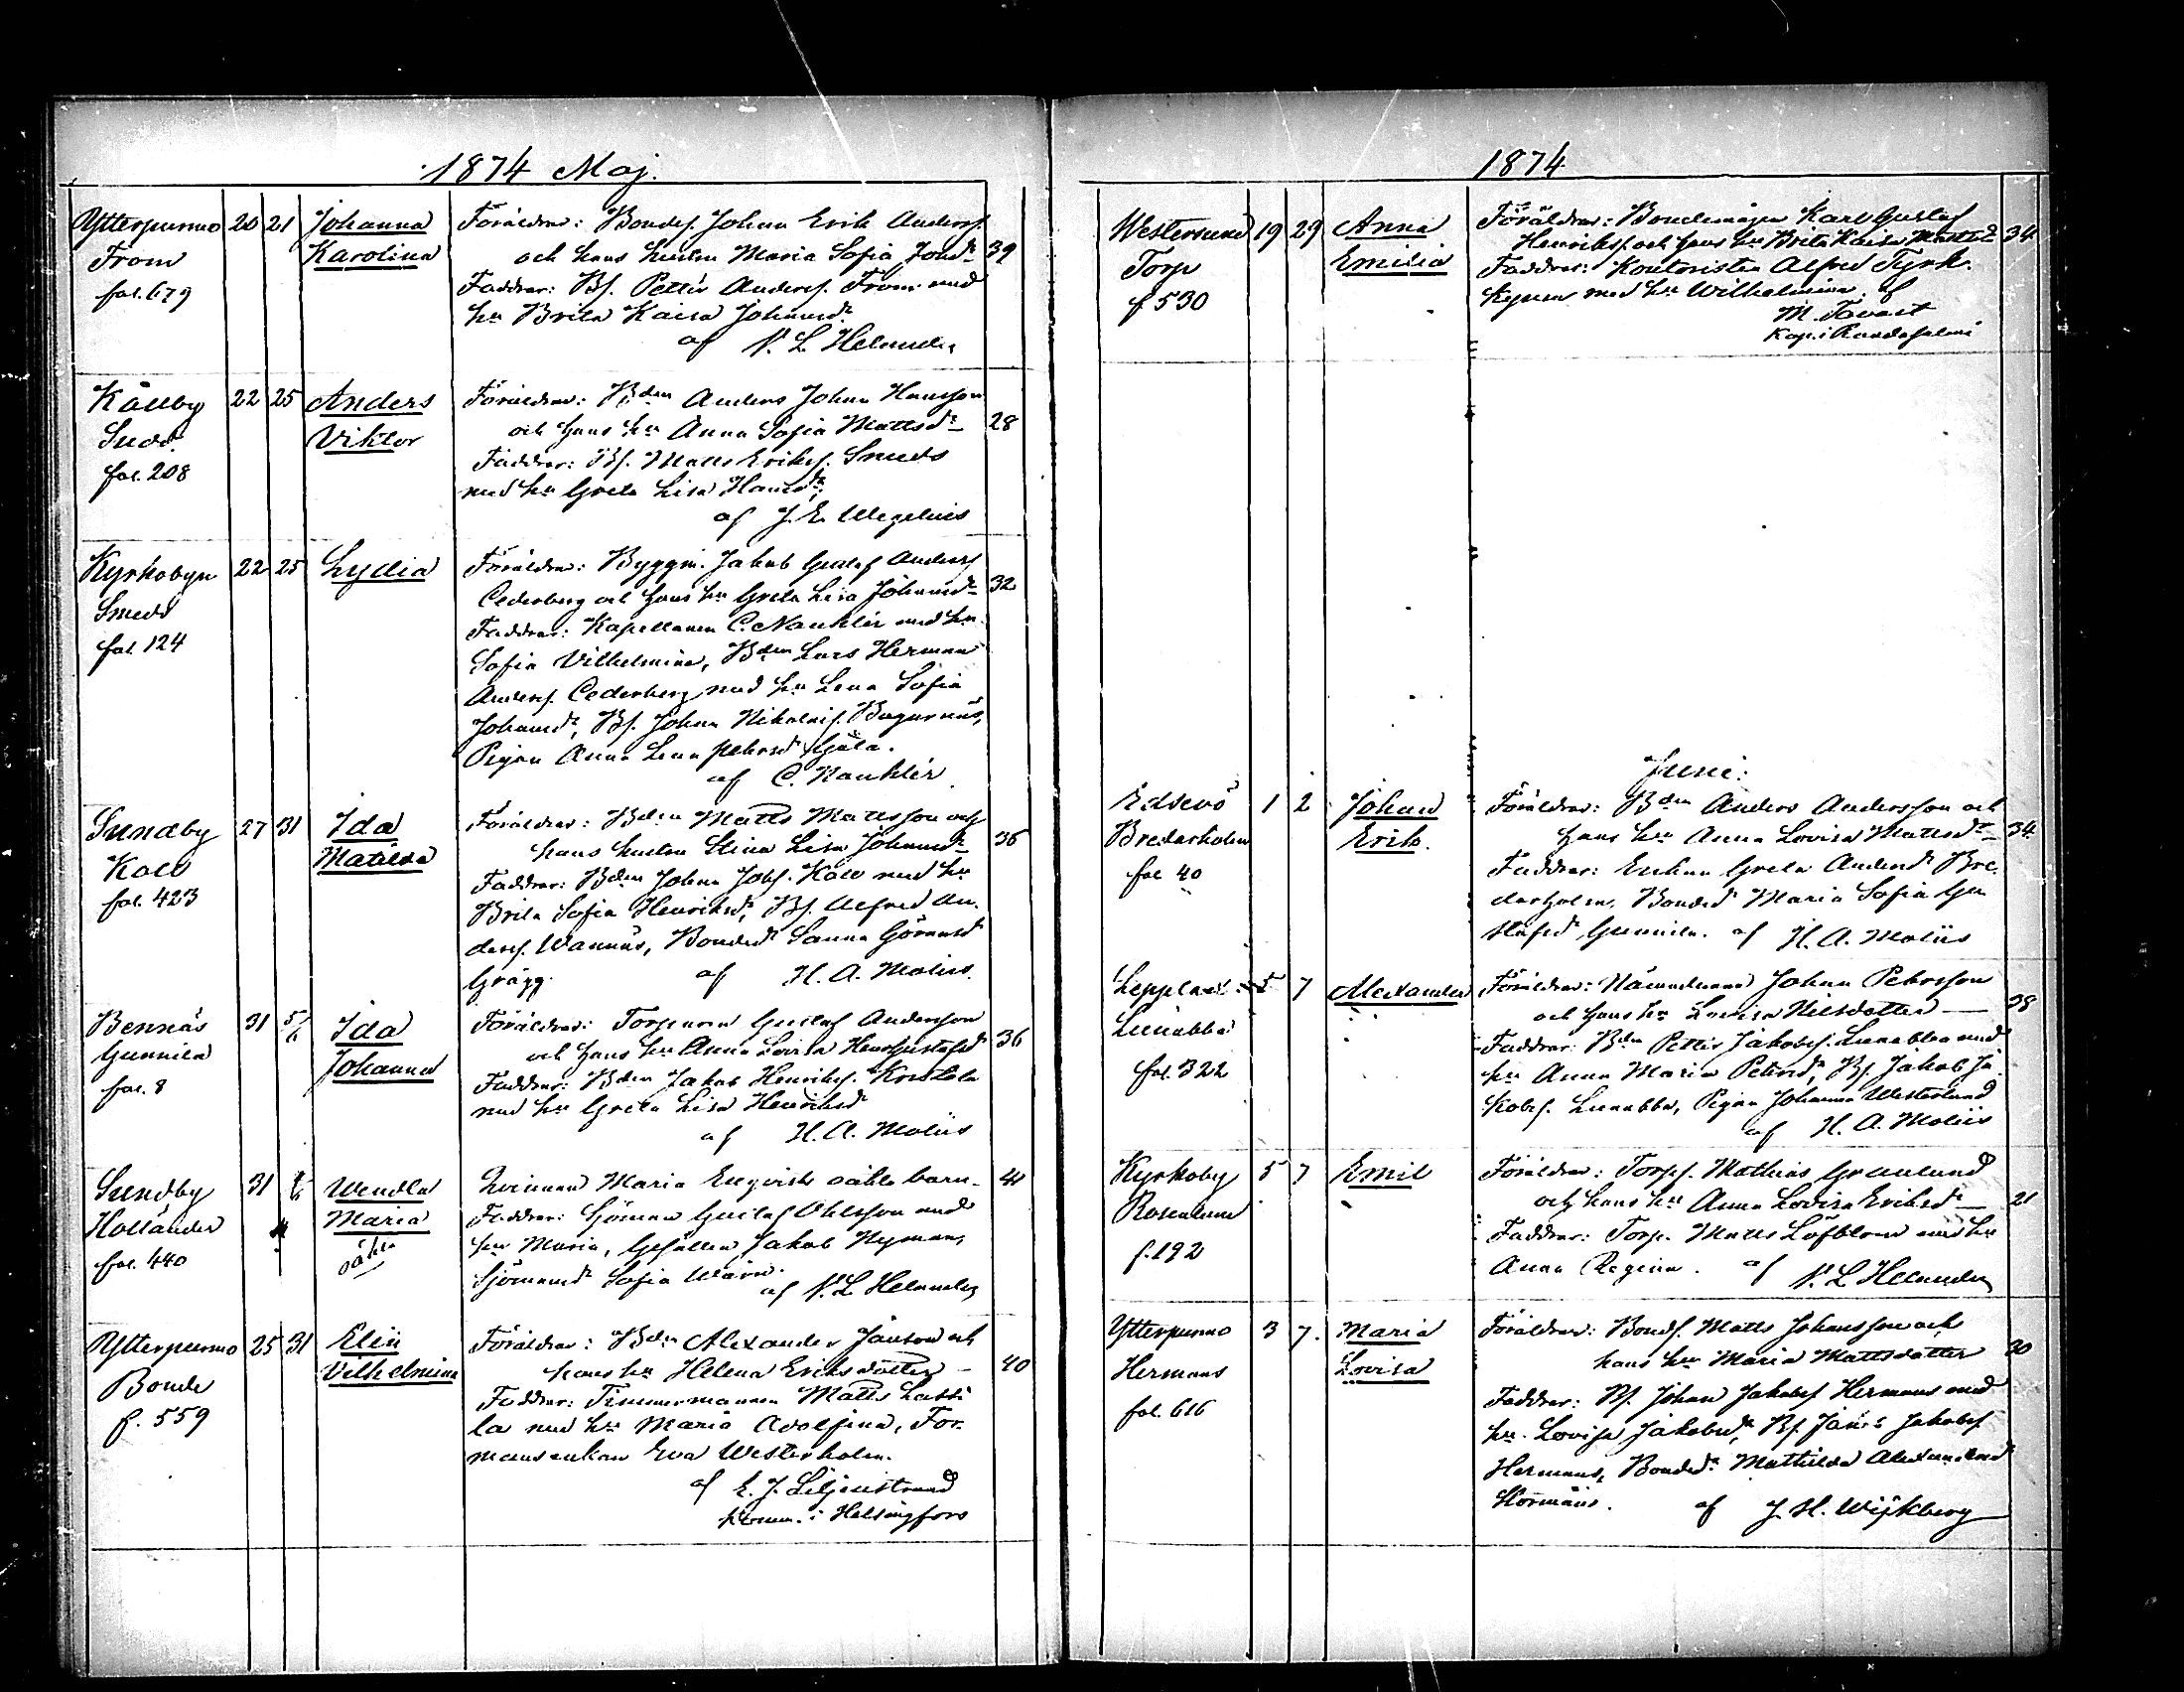 1874 Maj.
Ytterpurmo 20 21 Johanna Föräldrar: Bondes. Johan Erik Anders.
From Karolina och hans hustru Maria Sofia Johsdr 39
fol. 679 Faddrar: Bs. Petter Anders. From med
hu Brita Kaisa Johansdr
af N. L. Helander
Kållby 22 25 Anders Föräldrar: Bden Anders Johan Hansson
Sved Viktor och hans hu Anna Sofia Mattsdr 28
fol. 208 Faddrar: Bs. Matts Eriks. Smeds
med hu Greta Lisa Hansdr
af J. E. Wegelius
Kyrkobyn 22 25 Lydia Föräldrar: Byggm. Jakob Gustaf Anders
Smeds Cederberg och hans hu Greta Lisa Johansdr 32
fol. 124 Faddrar: Kapellanen C. Nauklér med hu
Sofia Vilhelmina, Bden Lars Herman
Anders. Cederberg med hu Lena Sofia
Johansdr, Bs. Johan Nikolais. Bagarnäs,
Pigan Anna Lena Petersdr
af C. Nauklér
Sundby 27 31 Ida Föräldrar: Bden Matts Mattsson och
Kalv Matilda hans hustru Stina Lisa Johansdr 36
fol. 423 Faddrar: Bden Johan Jobs. Kalv med hu
Brita Sofia Henriksdr, Bs. Alfred An-
ders. Wannäs, Bondedr Sanna Göransdr
Grägg. af H. A. Moliis
Bennäs 31 5/6 Ida Föräldrar: Torparen Gustaf Andersson
Gunnila Johanna och hans hu Anna Lovisa Gustafsdr 36
fol. 8 Faddrar: Bden Jakob Henriks.
med hu Greta Lisa Henriksdr
af H. A. Moliis
Sundby 31 Wendla Qvinnan Maria Enqvists oäkta barn 41
Holländer Maria Faddrar: Sjöman Gustaf Ohlsson med
fol. 440 oäkta hu Maria, Gesällen Jakob Nyman,
Sjömansdr Sofia Wärn.
af N. L. Helander
Ytterpurmo 25 31 Elin Föräldrar: Bden Alexander Jånson och
Bonde Vilhelmina hans hu Helena Eriksdotter 40
f. 559 Faddrar: Timmermannen Matts Lassi-
la med hu Maria Adolfina, For-
mansenkan Eva Westerholm.
af E. J. Liljenstrand
i Helsingfors
1874
Westersund 19 29 Anna Föräldrar: Bondemågen Karl Gustaf
Torp Emilia Henriks. och hans hu Brita Kaisa Mattsdr 34
f 530 Faddrar: Kontoristen Alfred Tyrk.
med hu Wilhelmina. af
M. Tavast
Kap. i Randasalmi
Juni:
Edsevö 1 2 Johan Föräldrar: Bden Anders Andersson och
Bredarholm Erik. hans hu Anna Lovisa Mattsdr 34
fol 40 Faddrar: Enkan Greta Andersdr Bre-
darholm, Bondedr Maria Sofia Gu
stafsdr Gunnila. af H. A. Moliis
Lepplax 5 7 Alexander Föräldrar: Nämndeman Johan Petersson
Lunabba och hans hu Lovisa Nilsdotter 38
fol. 322 Faddrar: Bden Petter Jakobs. Lunabba med
hu Anna Maria Petersdr, Bs. Jakob Ja
kobs. Lunabba, Pigan Johanna Westerlund
af H. A. Moliis
Kyrkoby 5 7 Emil Föräldrar: Torps. Mathias Granlund
Rosenlund och hans hu Anna Lovisa Eriksdr 21
f. 192 Faddrar: Torp. Matts Löfblom med hu
Anna Regina. af N. L. Helander
Ytterpurmo 3 7. Maria Föräldrar: Bonds. Matts Johansson och
Hermans Lovisa hans hu Maria Mattsdotter 30
fol. 616 Faddrar: Bs. Johan Jakobs Hermans med
hu. Lovisa Jakobsdr, Bs. Jakobs
Hermans, Bondedr Mathilda Alexandersdr
Stormåns. af J. H. Wijkberg